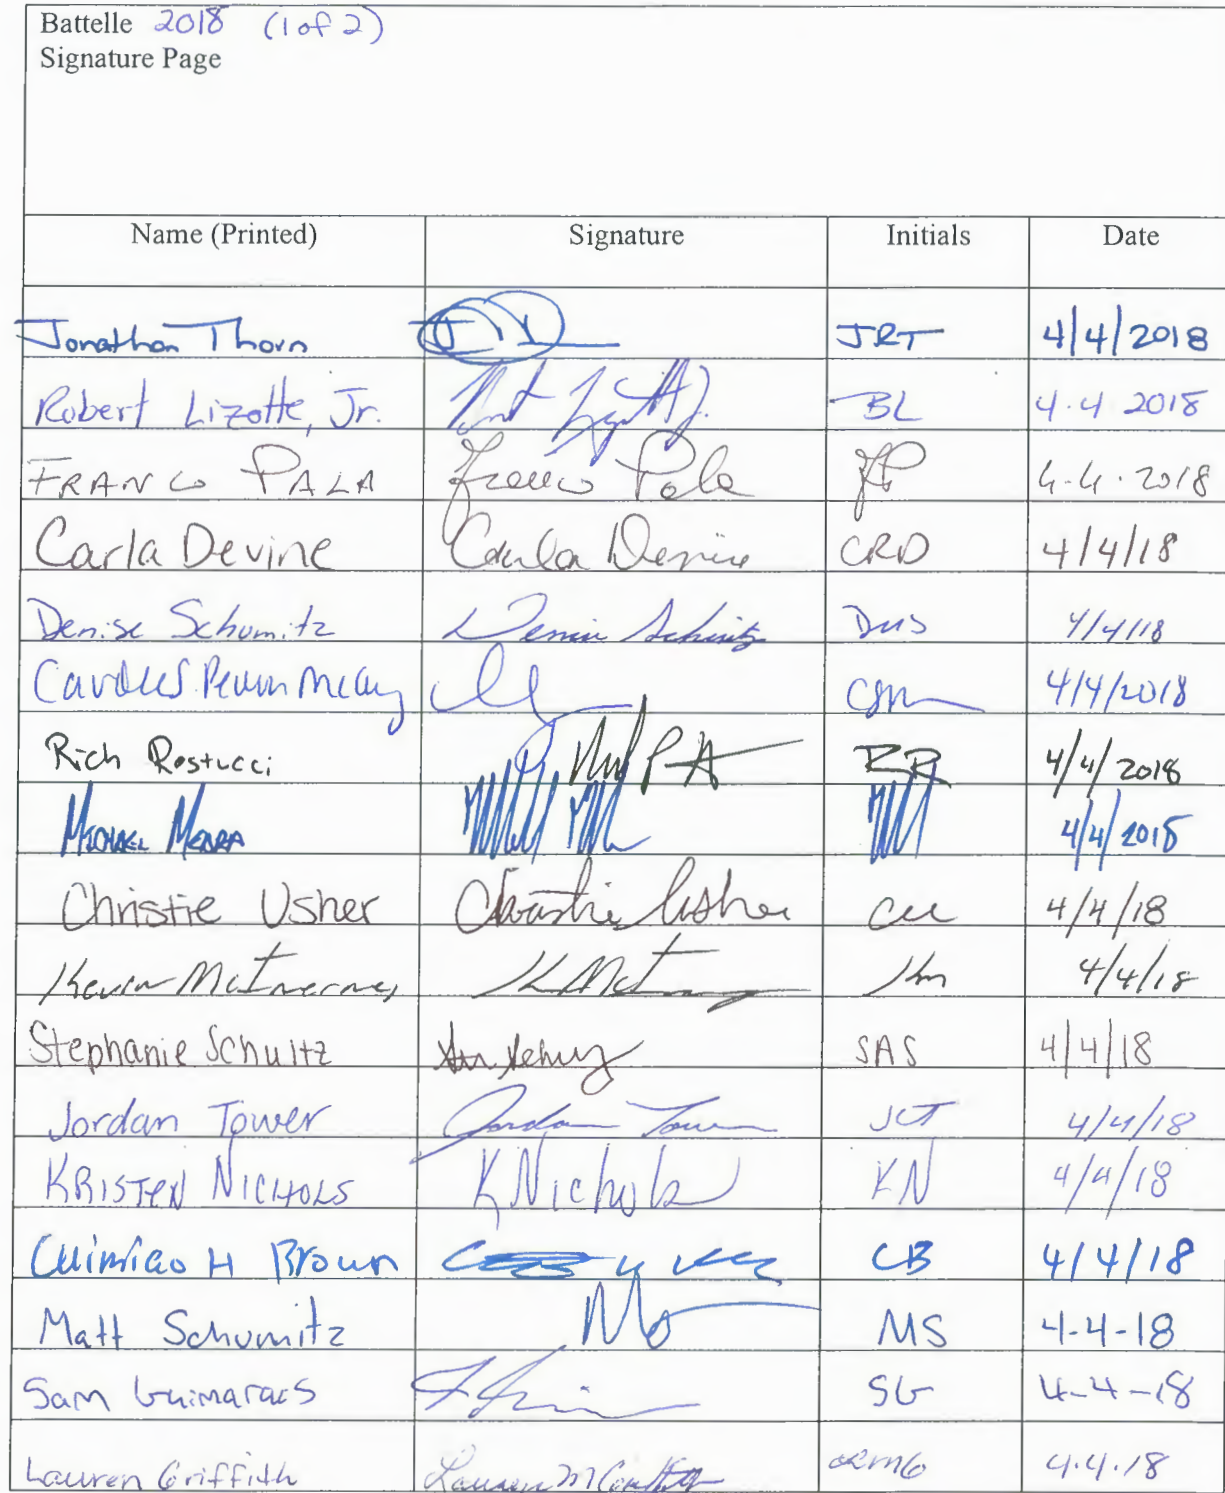 Battelle 2018 (1 of 2)
Signature Page
Name (Printed) Signature Initials Date
Jonathan Thorn JRT 4/4/2018
Robert Lizotte, Jr. BL 4.4 2018
FRANCO PALA Franco Pala FP 4-4.2018
Carla Devine Carla Devine CRD 4/4/18
Denise Schumitz Denise Schumitz DMS 4/4/18
4/4/2018
Rich Restucci RR 4/4/2018
MICHAEL MEARA 4/4/2018
Christie Usher Christie Usher CU 4/4/18
Kevin McInerney KM 4/4/18
Stephanie Schultz SAS 4/4/18
Jordan Tower Jordan Tower JCT 4/4/18
KRISTEN NICHOLS K Nichols KN 4/4/18
H Brown CB 4/4/18
Matt Schumitz MS 4-4-18
Sam Guimaraes SG 4-4-18
Lauren Griffith Lauren M Griffith LMG 4.4.18